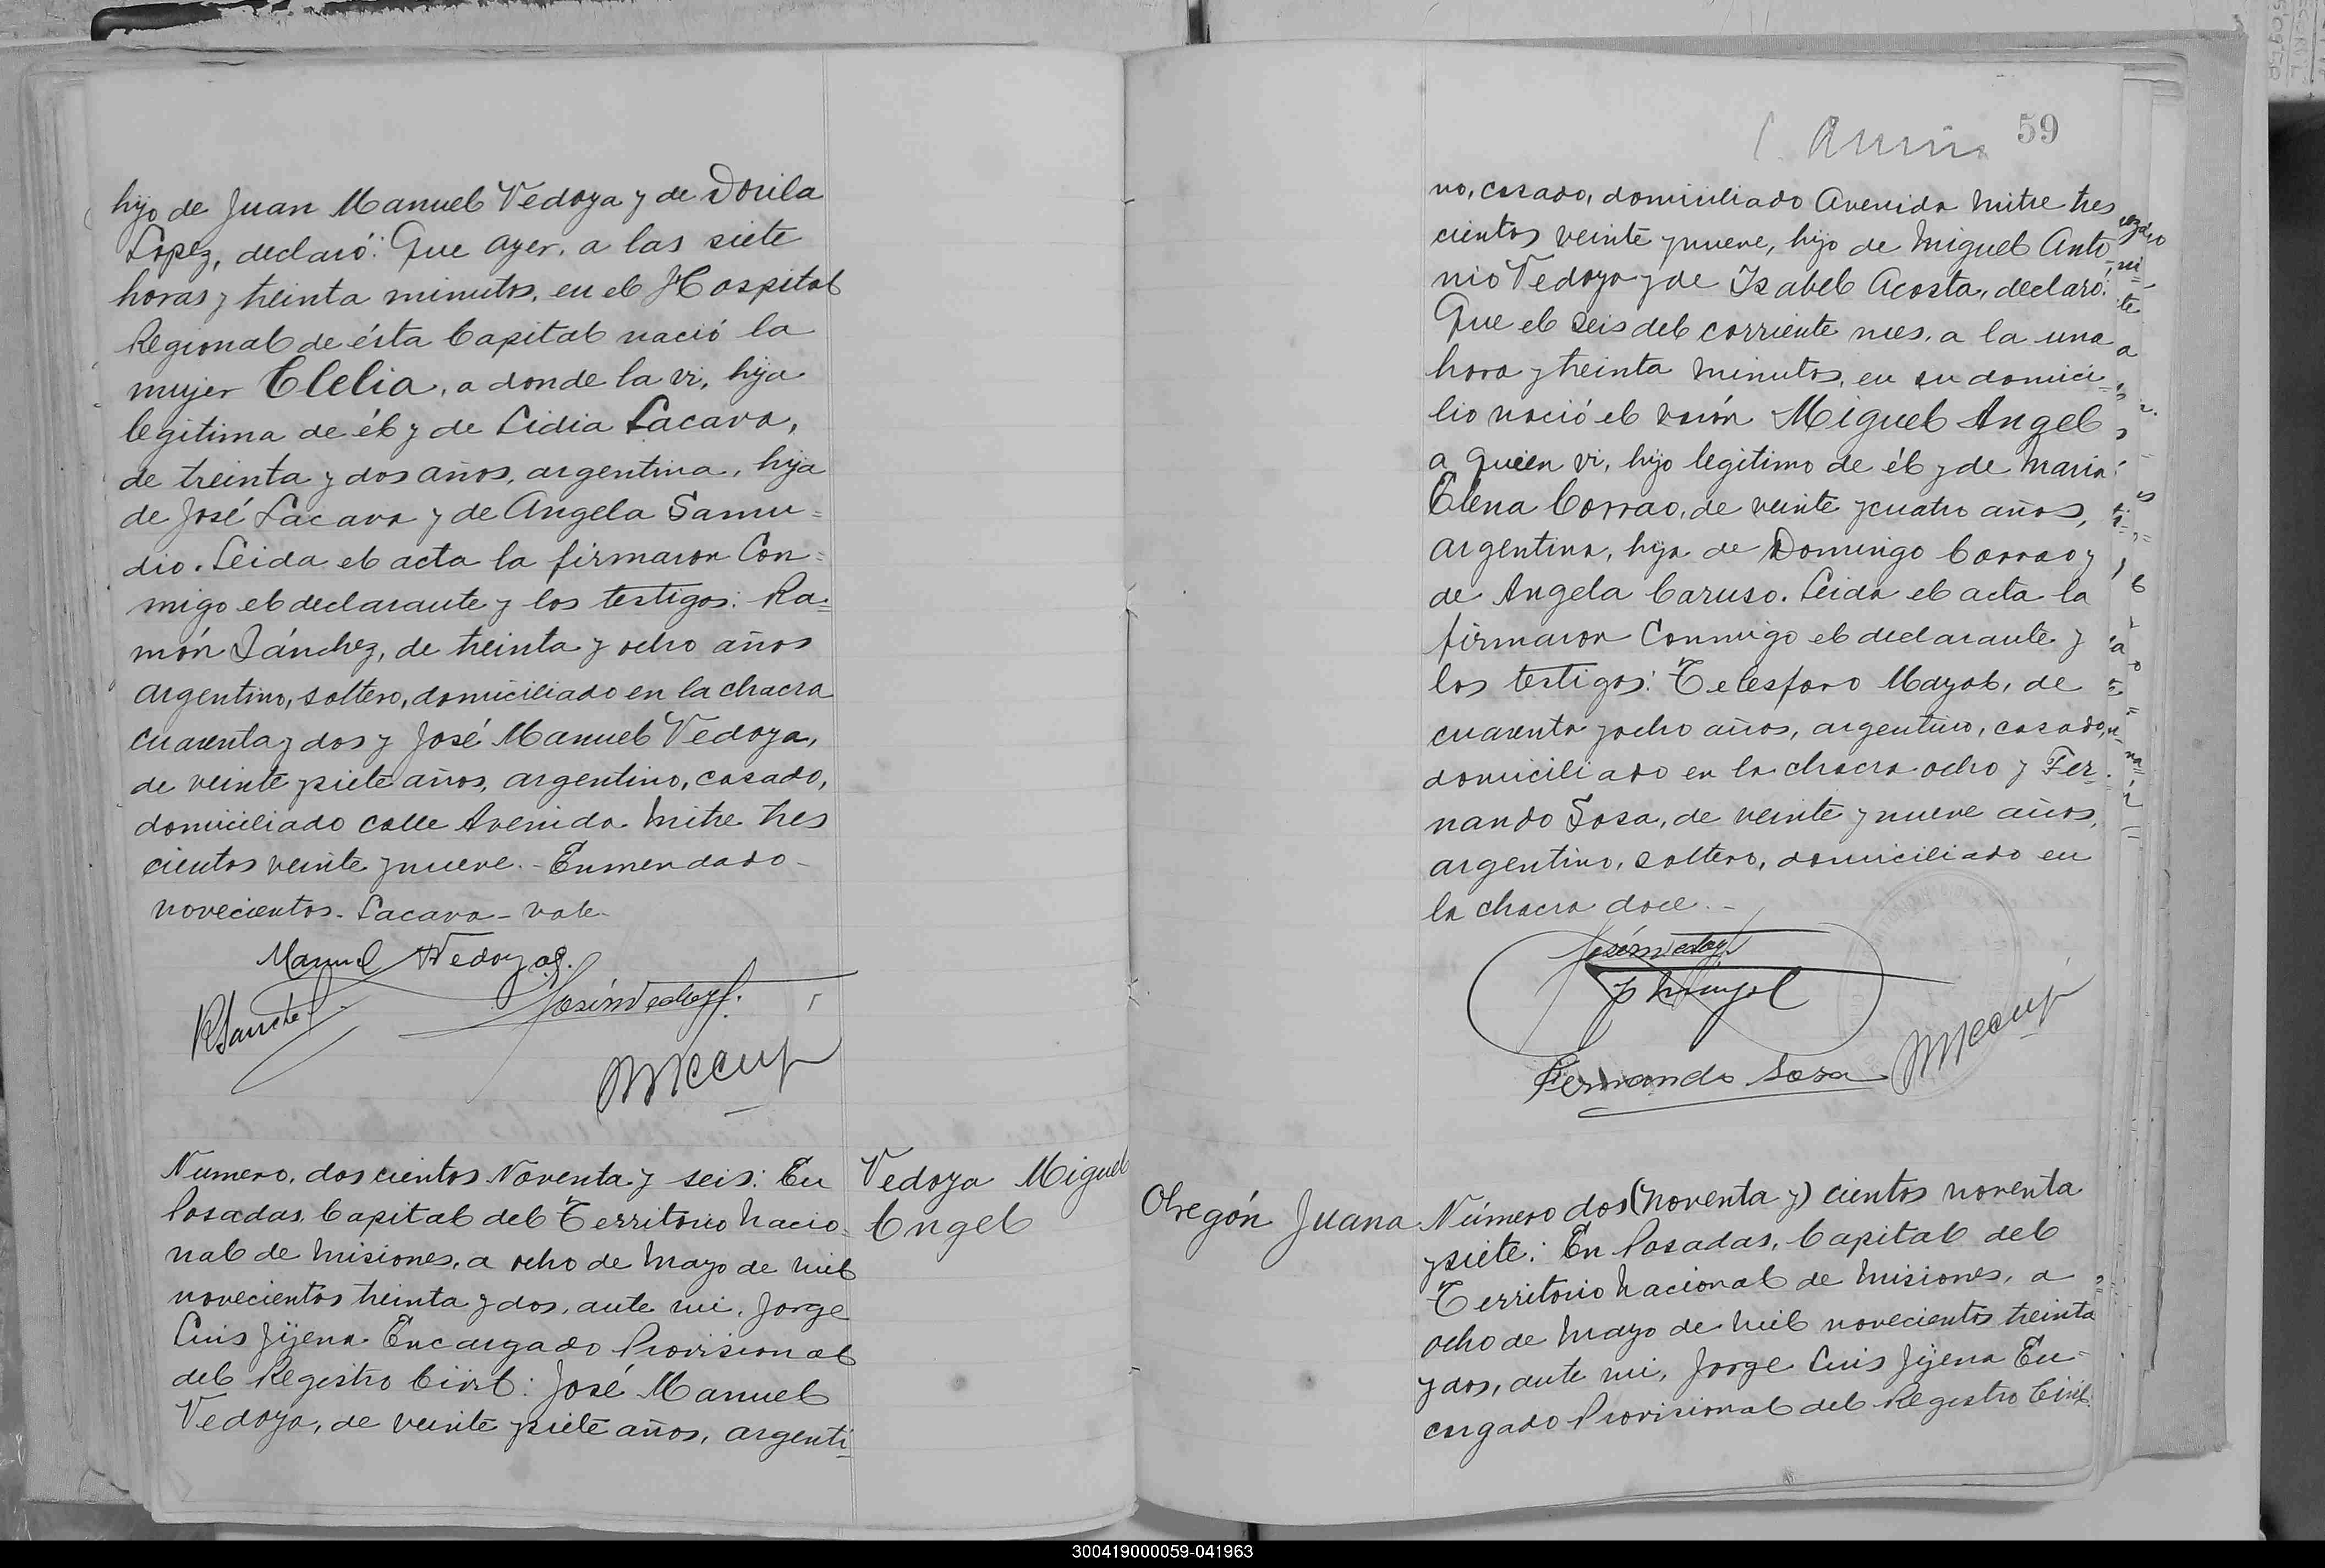 hijo de Juan Manuel Vedoya y de Dorila
Lopez, declaró: Que ayer, a las siete
horas y treinta minutos, en el Hospital
Regional de ésta Capital nació la
mujer Clelia, a donde la vi, hija
legitima de él y de Lidia Lacava,
de treinta y dos años, argentina, hija
de José Lacava y de Angela Samu=
dio. Leida el acta la firmaron Con=
migo el declarante y los testigos: Ra=
món Sánchez, de treinta y ocho años
argentino, soltero, domiciliado en la chacra
cuarenta y dos y José Manuel Vedoya,
de veinte y siete años, argentino, casado,
domiciliado calle Avenida Mitre tres
cientos veinte y nueve.- Enmendado-
novecientos- Lacava- vale-
Manuel Vedoya
RSanchez
Numero, doscientos Noventa y seis: En
Posadas, Capital del Territorio Nacio-
nal de Misiones, a ocho de Mayo de mil
novecientos treinta y dos, ante mi, Jorge
Luis Jijena Encargado Provisional
del Registro Civil: José Manuel
Vedoya, de veinte y siete años, argenti=
Vedoya Miguel
Angel
59
no, casado, domiciliado Avenida Mitre tres
cientos veinte y nueve, hijo de Miguel Anto-
nio Vedoya y de Isabel Acosta, declaró:
Que el seis del corriente mes, a la una
hora y treinta minutos, en su domici-
lio nació el varón Miguel Angel
a quien vi, hijo legitimo de él y de Maria
Elena Corrao, de veinte y cuatro años,
argentina, hija de Domingo Corrao y
de Angela Caruso. Leida el acta la
firmaron Conmigo el declarante y
los testigos: Telesforo Mayol, de
cuarenta y ocho años, argentino, casado,
domiciliado en la chacra ocho y Fer-
nando Sosa, de veinte y nueve años,
argentino, soltero, domiciliado en
la chacra doce.-
Fernando Sosa
Obregón Juana
Número dos (noventa y) cientos noventa
y siete: En Posadas, Capital del
Territorio Nacional de Misiones, a
ocho de Mayo de Mil novecientos treinta
y dos, ante mi, Jorge Luis Jijena En-
cargado Provisional del Registro Civil:
300419000059-041963